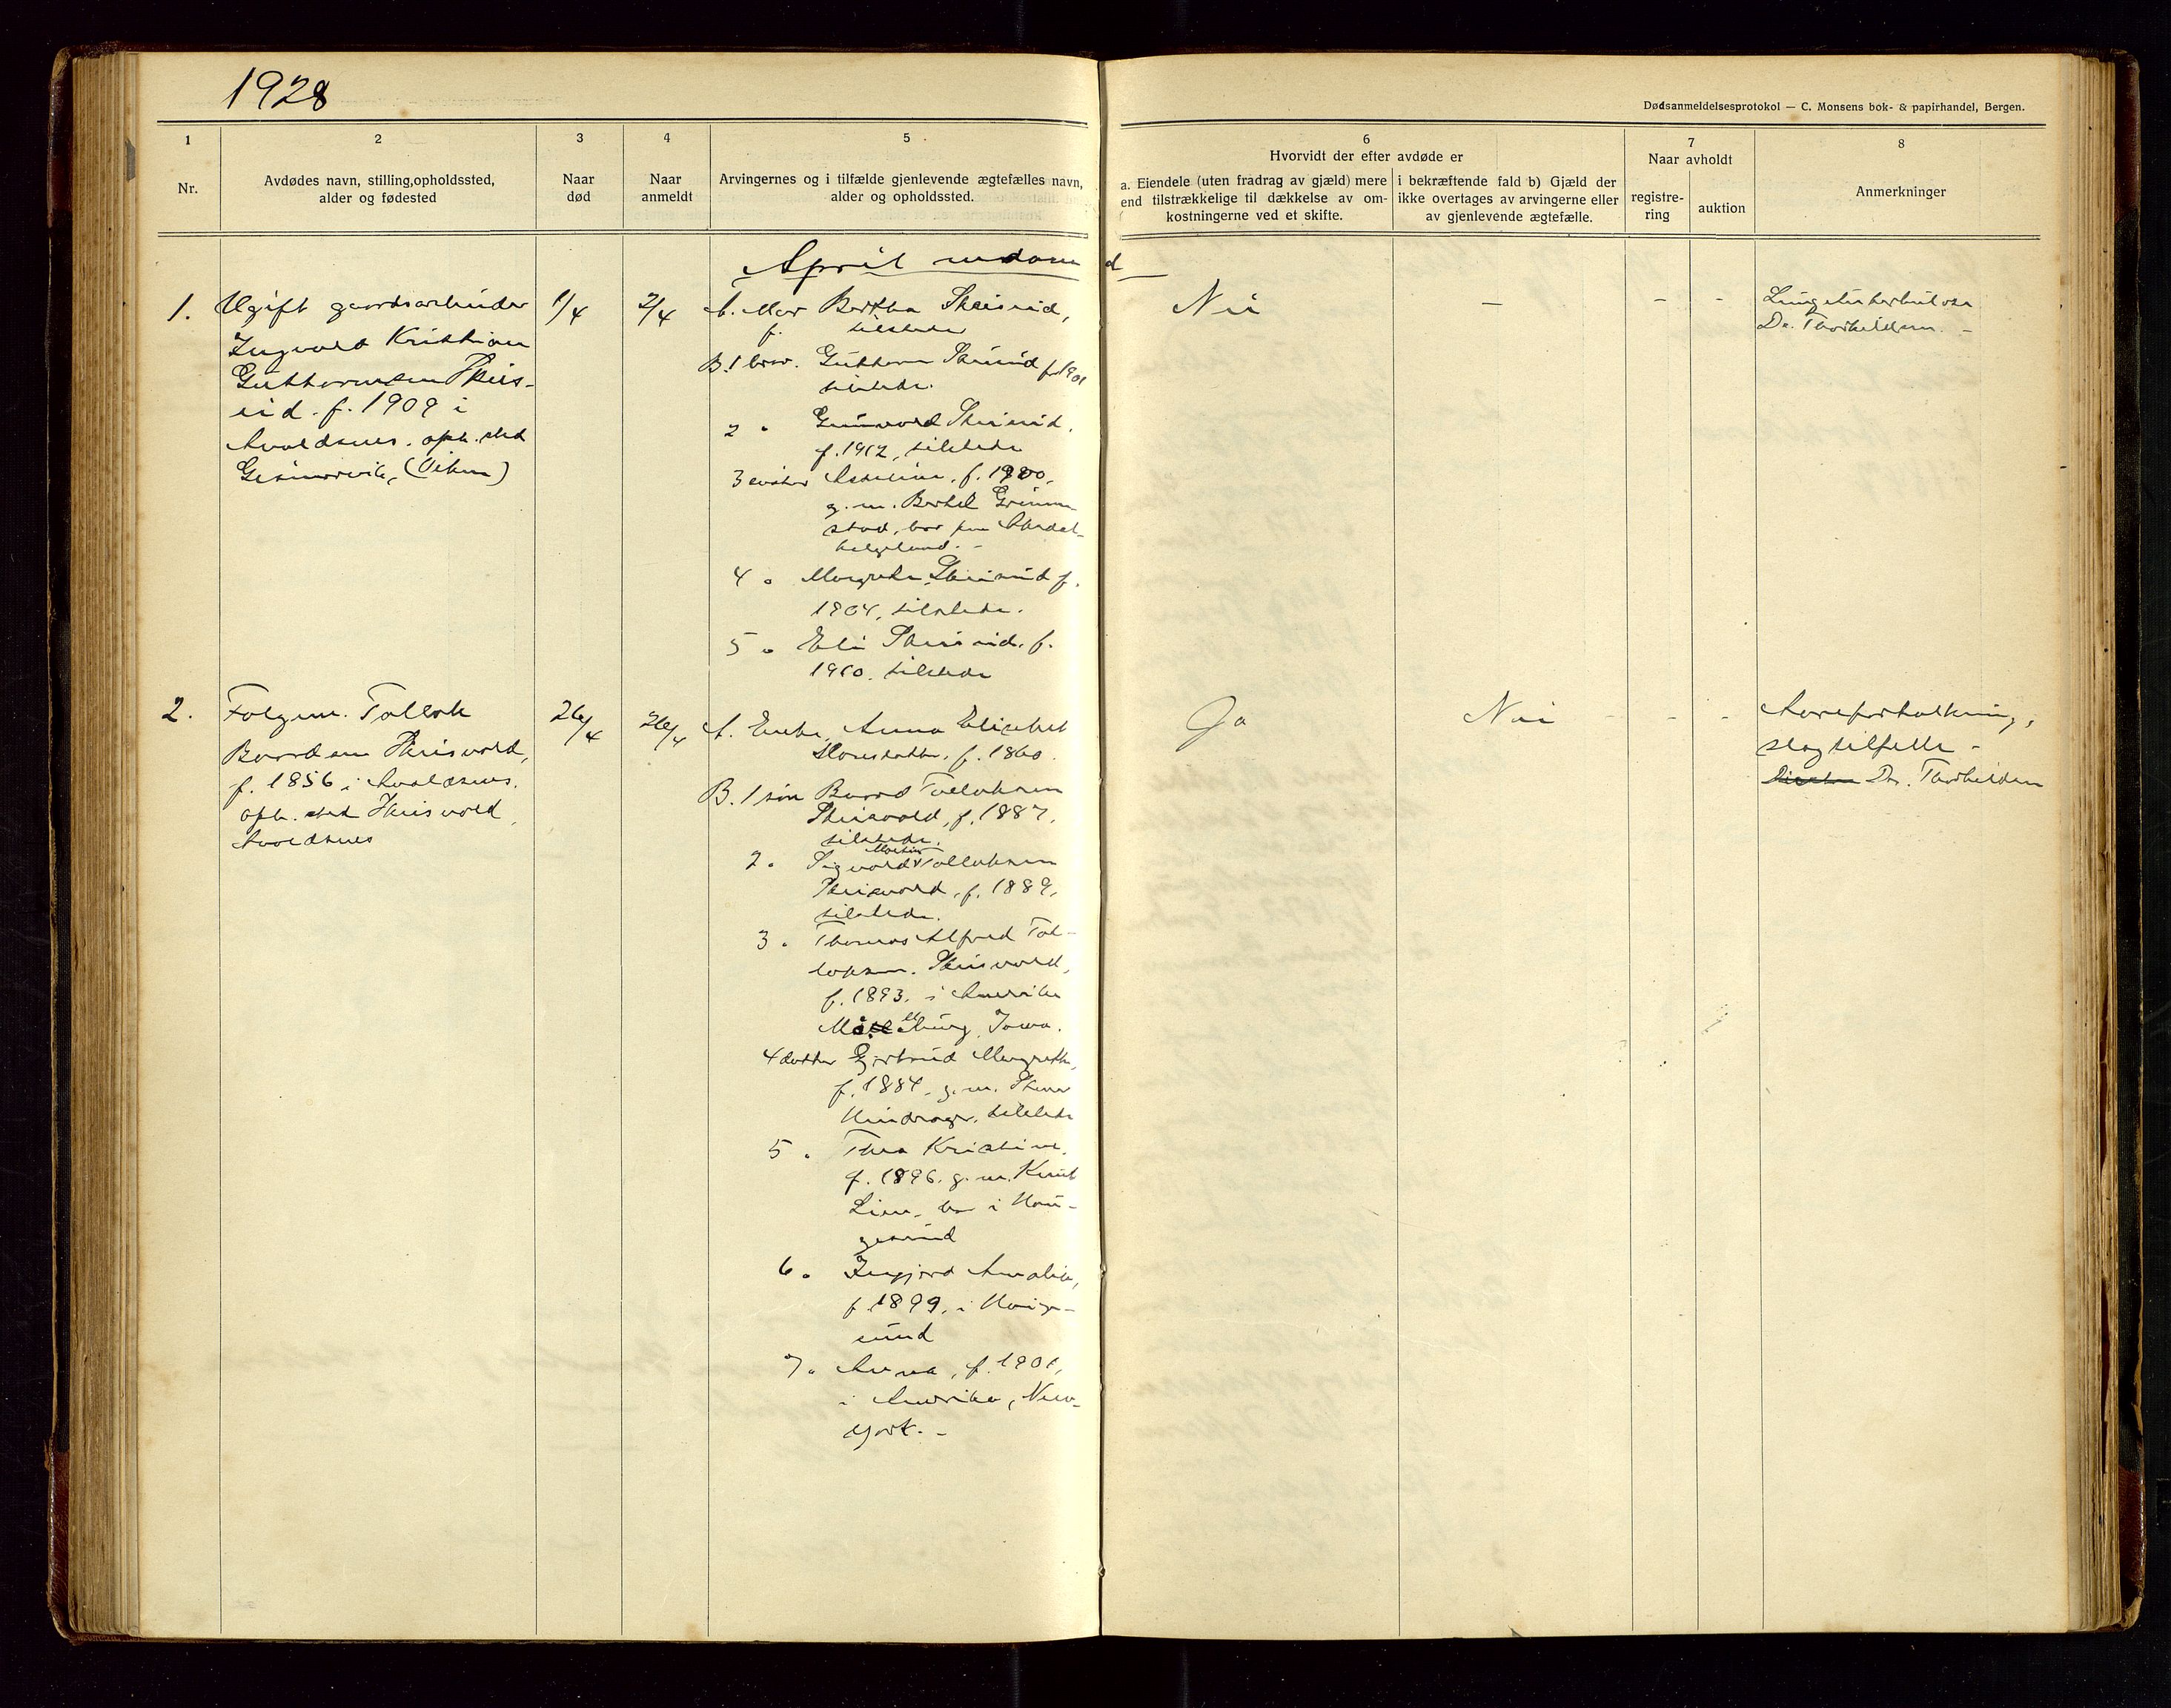 1928
Dødsanmeldelsesprotokol — C. Monsens bok- & papirhandel, Bergen.
1
2
3
4
5
6
7
8
Nr.
Avdødes navn, stilling, opholdssted,
alder og fødested
Naar
død
Naar
anmeldt
Arvingernes og i tilfælde gjenlevende ægtefælles navn,
alder og opholdssted.
Hvorvidt der efter avdøde er
a. Eiendele (uten fradrag av gjæld) mere
end tilstrækkelige til dækkelse av om-
kostningerne ved et skifte.
i bekræftende fald b) Gjæld der
ikke overtages av arvingerne eller
av gjenlevende ægtefælle.
Naar avholdt
registre-
ring
auktion
Anmerkninger
April
1.
Ugift gaardsarbeider
Ingvald Kristian
Guttormsen Skeis-
eid. f. 1909 i
Avaldsnes. oph. sted
Gismarvik,
1/4
2/4
A. Mor Bertha Skeiseid,
f. tilstede
B. 1 bror. Guttorm Skeiseid f. 1901
tilstede.
2 " Gunvald Skeiseid.
f. 1912, tilstede
3 søster f. 1900,
g. m. Bertel Grinne
stad, bor paa
helgeland. -
4 " Margrete Skeiseid f.
1904, tilstede.
5 " Eli Skeiseid. f.
1910. tilstede
Nei
—
-
-
Lungetuberkulose
Dr. Thorkildsen. -
2.
Folgem. Tollok
Baardsen Skeisvold,
f. 1856 i Avaldsnes.
oph. sted Skeisvold,
Avaldsnes
26/4
26/4
A. Enke, Anna Elisabet
f. 1860.
B. 1 søn Baard Tolloksen
Skeisvold, f. 1887,
tilstede.
2 " Sigvald Martin Tolloksen
Skeisvold, f. 1889,
tilstede.
3 " Thomas Alfred Tol-
loksen. Skeisvold,
f. 1893. i Amerika
Iowa.
4 datter Gjertrud Margrethe,
f. 1884, g. m.
tilstede
5 " Thea Kristine.
f. 1896. g. m. Knut
Lien, bor i Hau-
gesund
6 " Ingjerd Amalie,
f. 1899, i Hauge-
sund
7 " Anna, f. 1901,
i Amerika, New-
york. -
Ja
Nei
-
-
-
Aareforkalkning,
slagtilfelle -
Dr. Thorkildsen